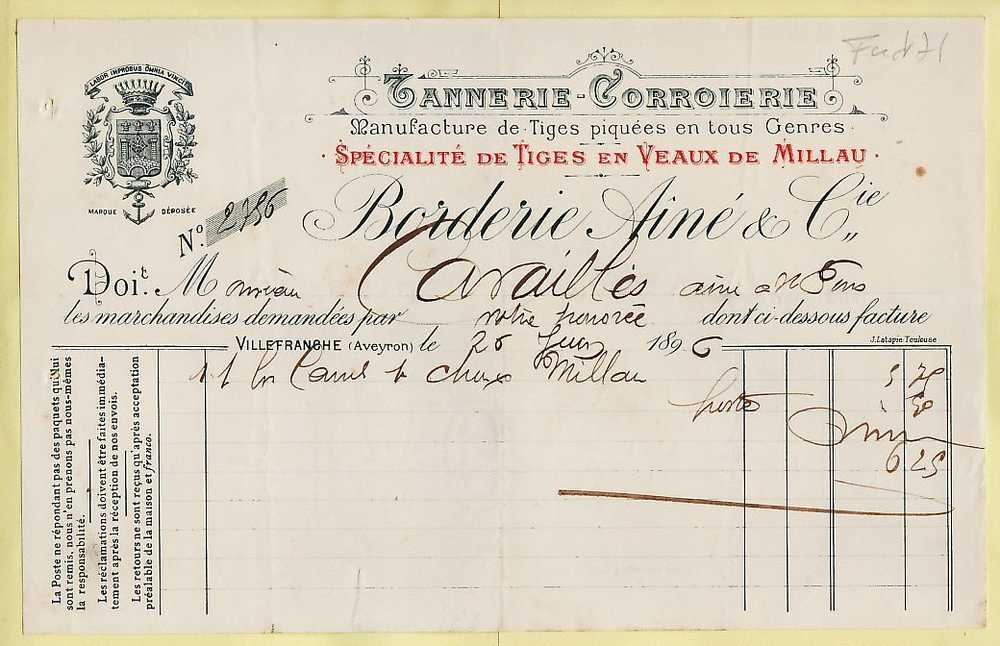 LABOR IMPROBUS OMNIA VINCIT
MARQUE DÉPOSÉE
TANNERIE-CORROIERIE
Manufacture de Tiges piquées en tous Genres
· SPÉCIALITÉ DE TIGES EN VEAUX DE MILLAU ·
Borderie Aîné & Cie
N.º 2756
Doit M onsieur Cavaillès
les marchandises demandées par votre honorée dont ci-dessous facture
VILLEFRANCHE (Aveyron) le 26 Juin 1896
J. Latapie Toulouse
Millau
6 25
La Poste ne répondant pas des paquets qui lui
sont remis, nous n'en prenons pas nous-mêmes
la responsabilité.
Les réclamations doivent être faites immédia-
tement après la réception de nos envois.
Les retours ne sont reçus qu'après acceptation
préalable de la maison et franco.